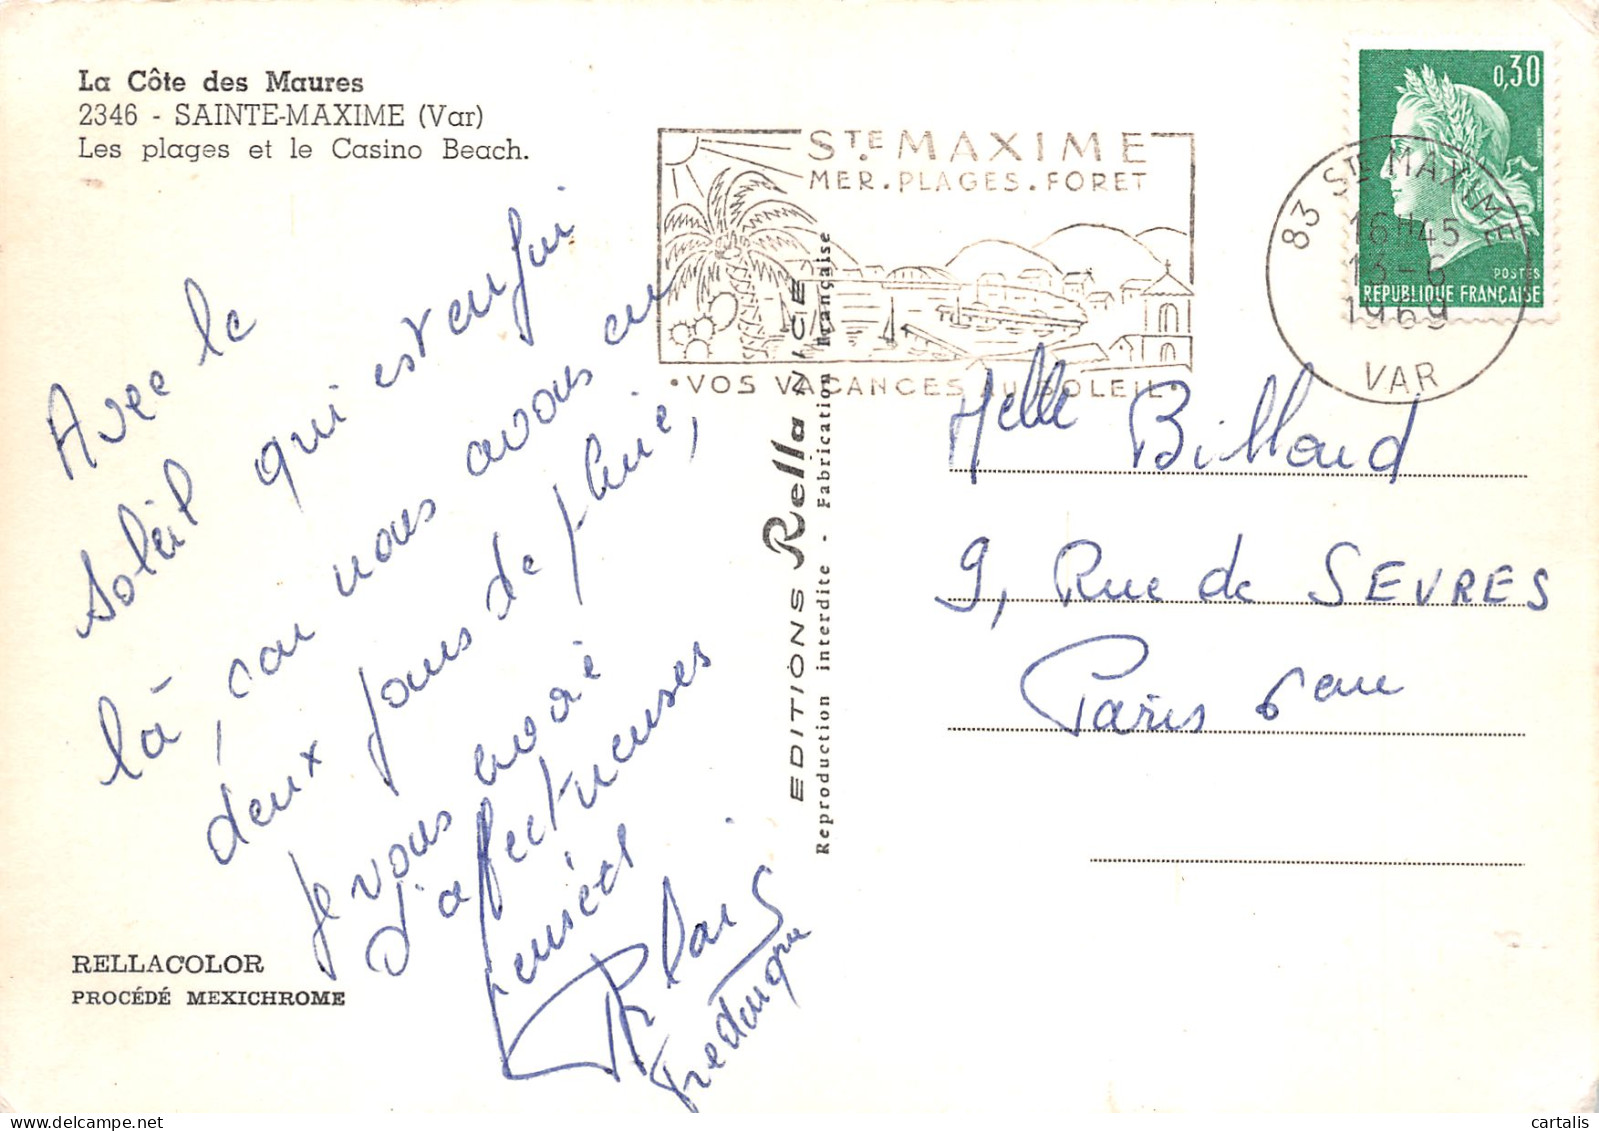 La Côte des Maures
2346 - SAINTE-MAXIME (Var)
Les plages et le Casino Beach.
STE MAXIME
MER. PLAGES. FORET
• VOS VACANCES AU SOLEIL •
0,30
POSTES
REPUBLIQUE FRANÇAISE
83 STE MAXIME
16H45
13-6
1969
VAR
Avec le
soleil qui est enfin
là, car nous avons eu
deux jours de pluie,
je vous envoie
d'affectueuses
pensées
Frédérique
EDITIONS Rella NICE
Reproduction interdite - Fabrication Française
Melle Billard
9, Rue de SEVRES
Paris 6eme
RELLACOLOR
PROCÉDÉ MEXICHROME
cartalis